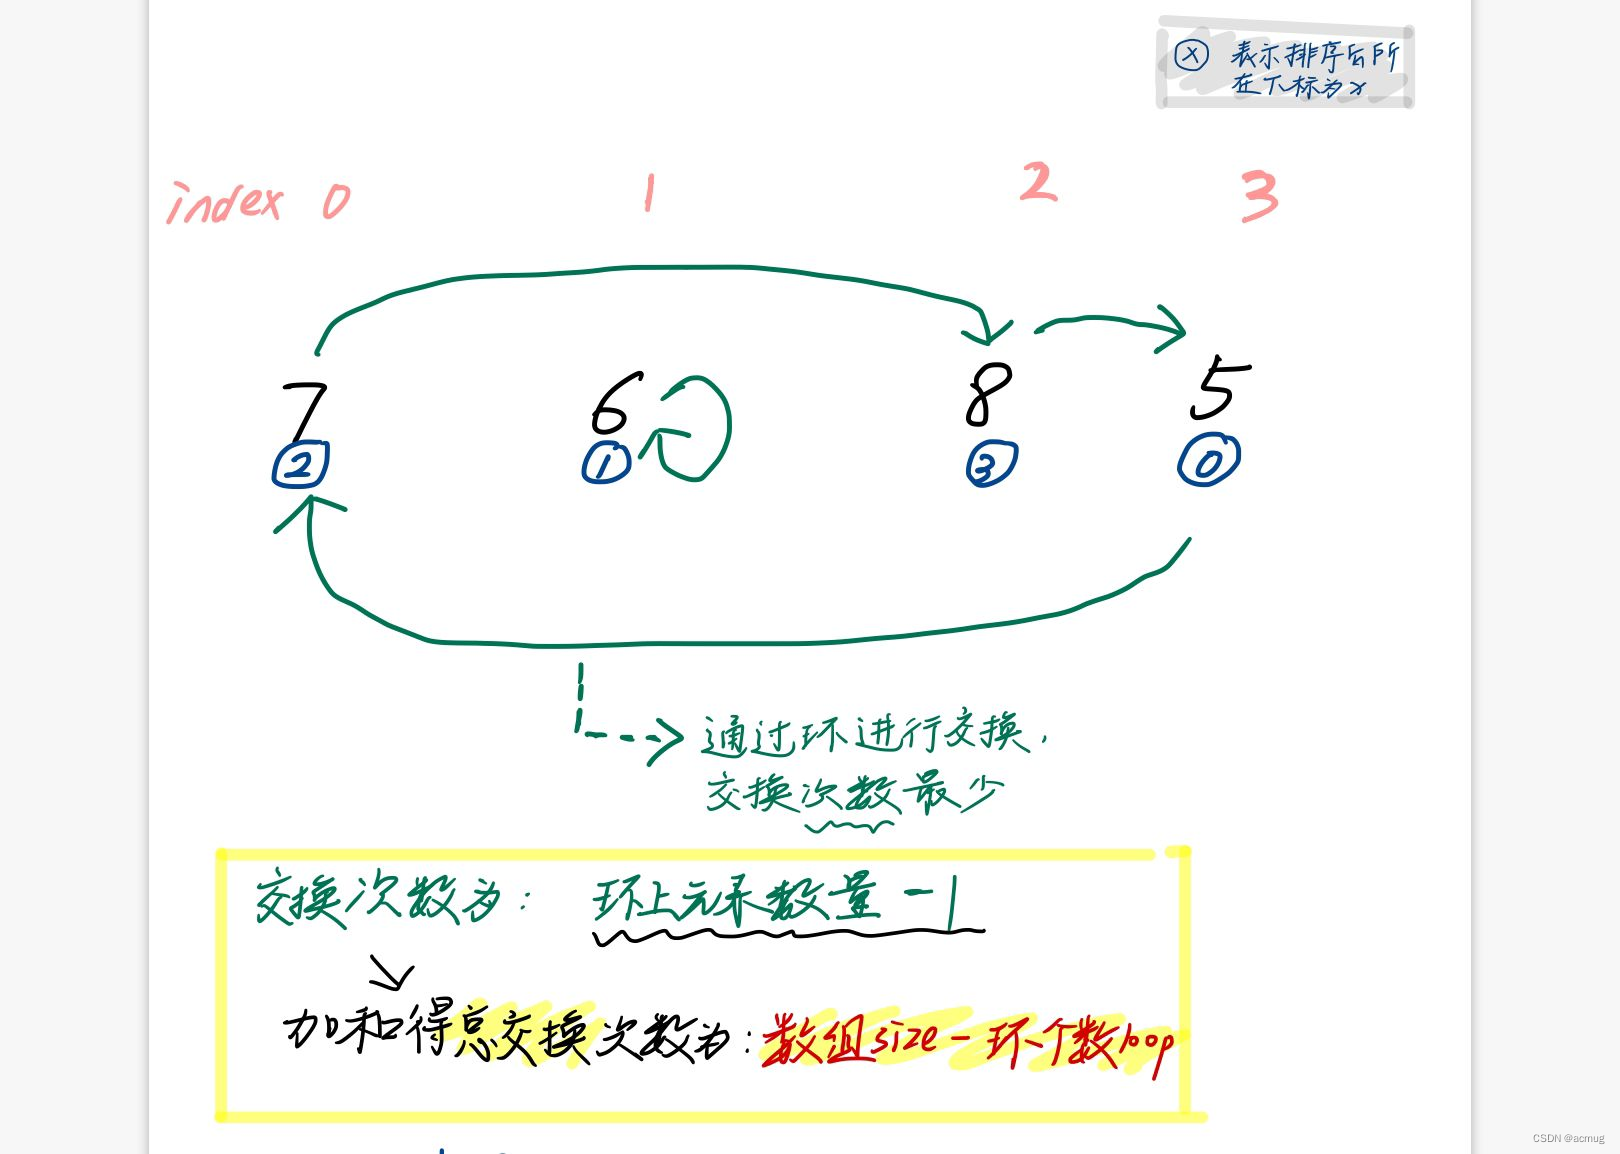 ⓧ 表示排序后所
在下标为x
index 0 1 2 3
7 6 8 5
② ① ③ ⓪
通过环进行交换,
交换次数最少
交换次数为: 环上元素数量-1
加和得总交换次数为: 数组size-环个数loop
CSDN @acmug